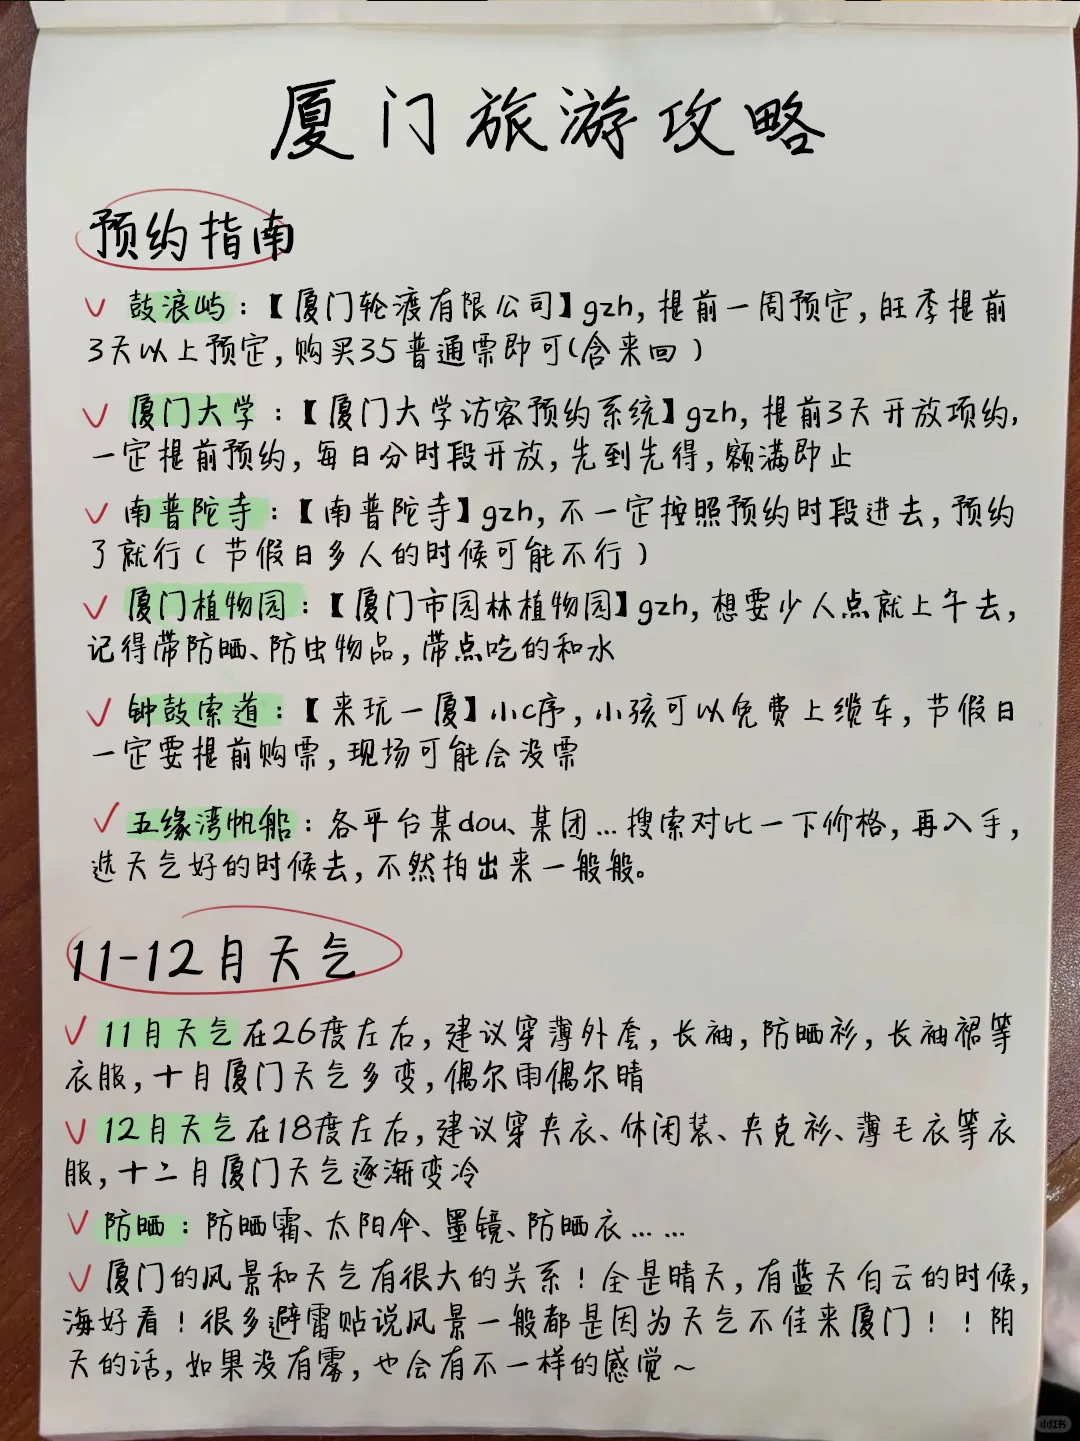 厦门旅游攻略
预约指南
✓ 鼓浪屿：【厦门轮渡有限公司】gzh，提前一周预定，旺季提前
3天以上预定，购买35普通票即可（含来回）
✓ 厦门大学：【厦门大学访客预约系统】gzh，提前3天开放项约，
一定提前预约，每日分时段开放，先到先得，额满即止
✓ 南普陀寺：【南普陀寺】gzh，不一定按照预约时段进去，预约
了就行（节假日多人的时候可能不行）
✓ 厦门植物园：【厦门市园林植物园】gzh，想要少人点就上午去，
记得带防晒、防虫物品，带点吃的和水
✓ 钟鼓索道：【来玩一厦】小c序，小孩可以免费上缆车，节假日
一定要提前购票，现场可能会没票
✓ 五缘湾帆船：各平台某dou、某团...搜索对比一下价格，再入手，
选天气好的时候去，不然拍出来一般般。
11-12月天气
✓ 11月天气在26度左右，建议穿薄外套，长袖，防晒衫，长袖裙等
衣服，十月厦门天气多变，偶尔雨偶尔晴
✓ 12月天气在18度左右，建议穿夹衣、休闲装、夹克衫、薄毛衣等衣
服，十二月厦门天气逐渐变冷
✓ 防晒：防晒霜、太阳伞、墨镜、防晒衣... ...
✓ 厦门的风景和天气有很大的关系！全是晴天，有蓝天白云的时候，
海好看！很多避雷贴说风景一般都是因为天气不佳来厦门！！阴
天的话，如果没有雾，也会有不一样的感觉~
小红书